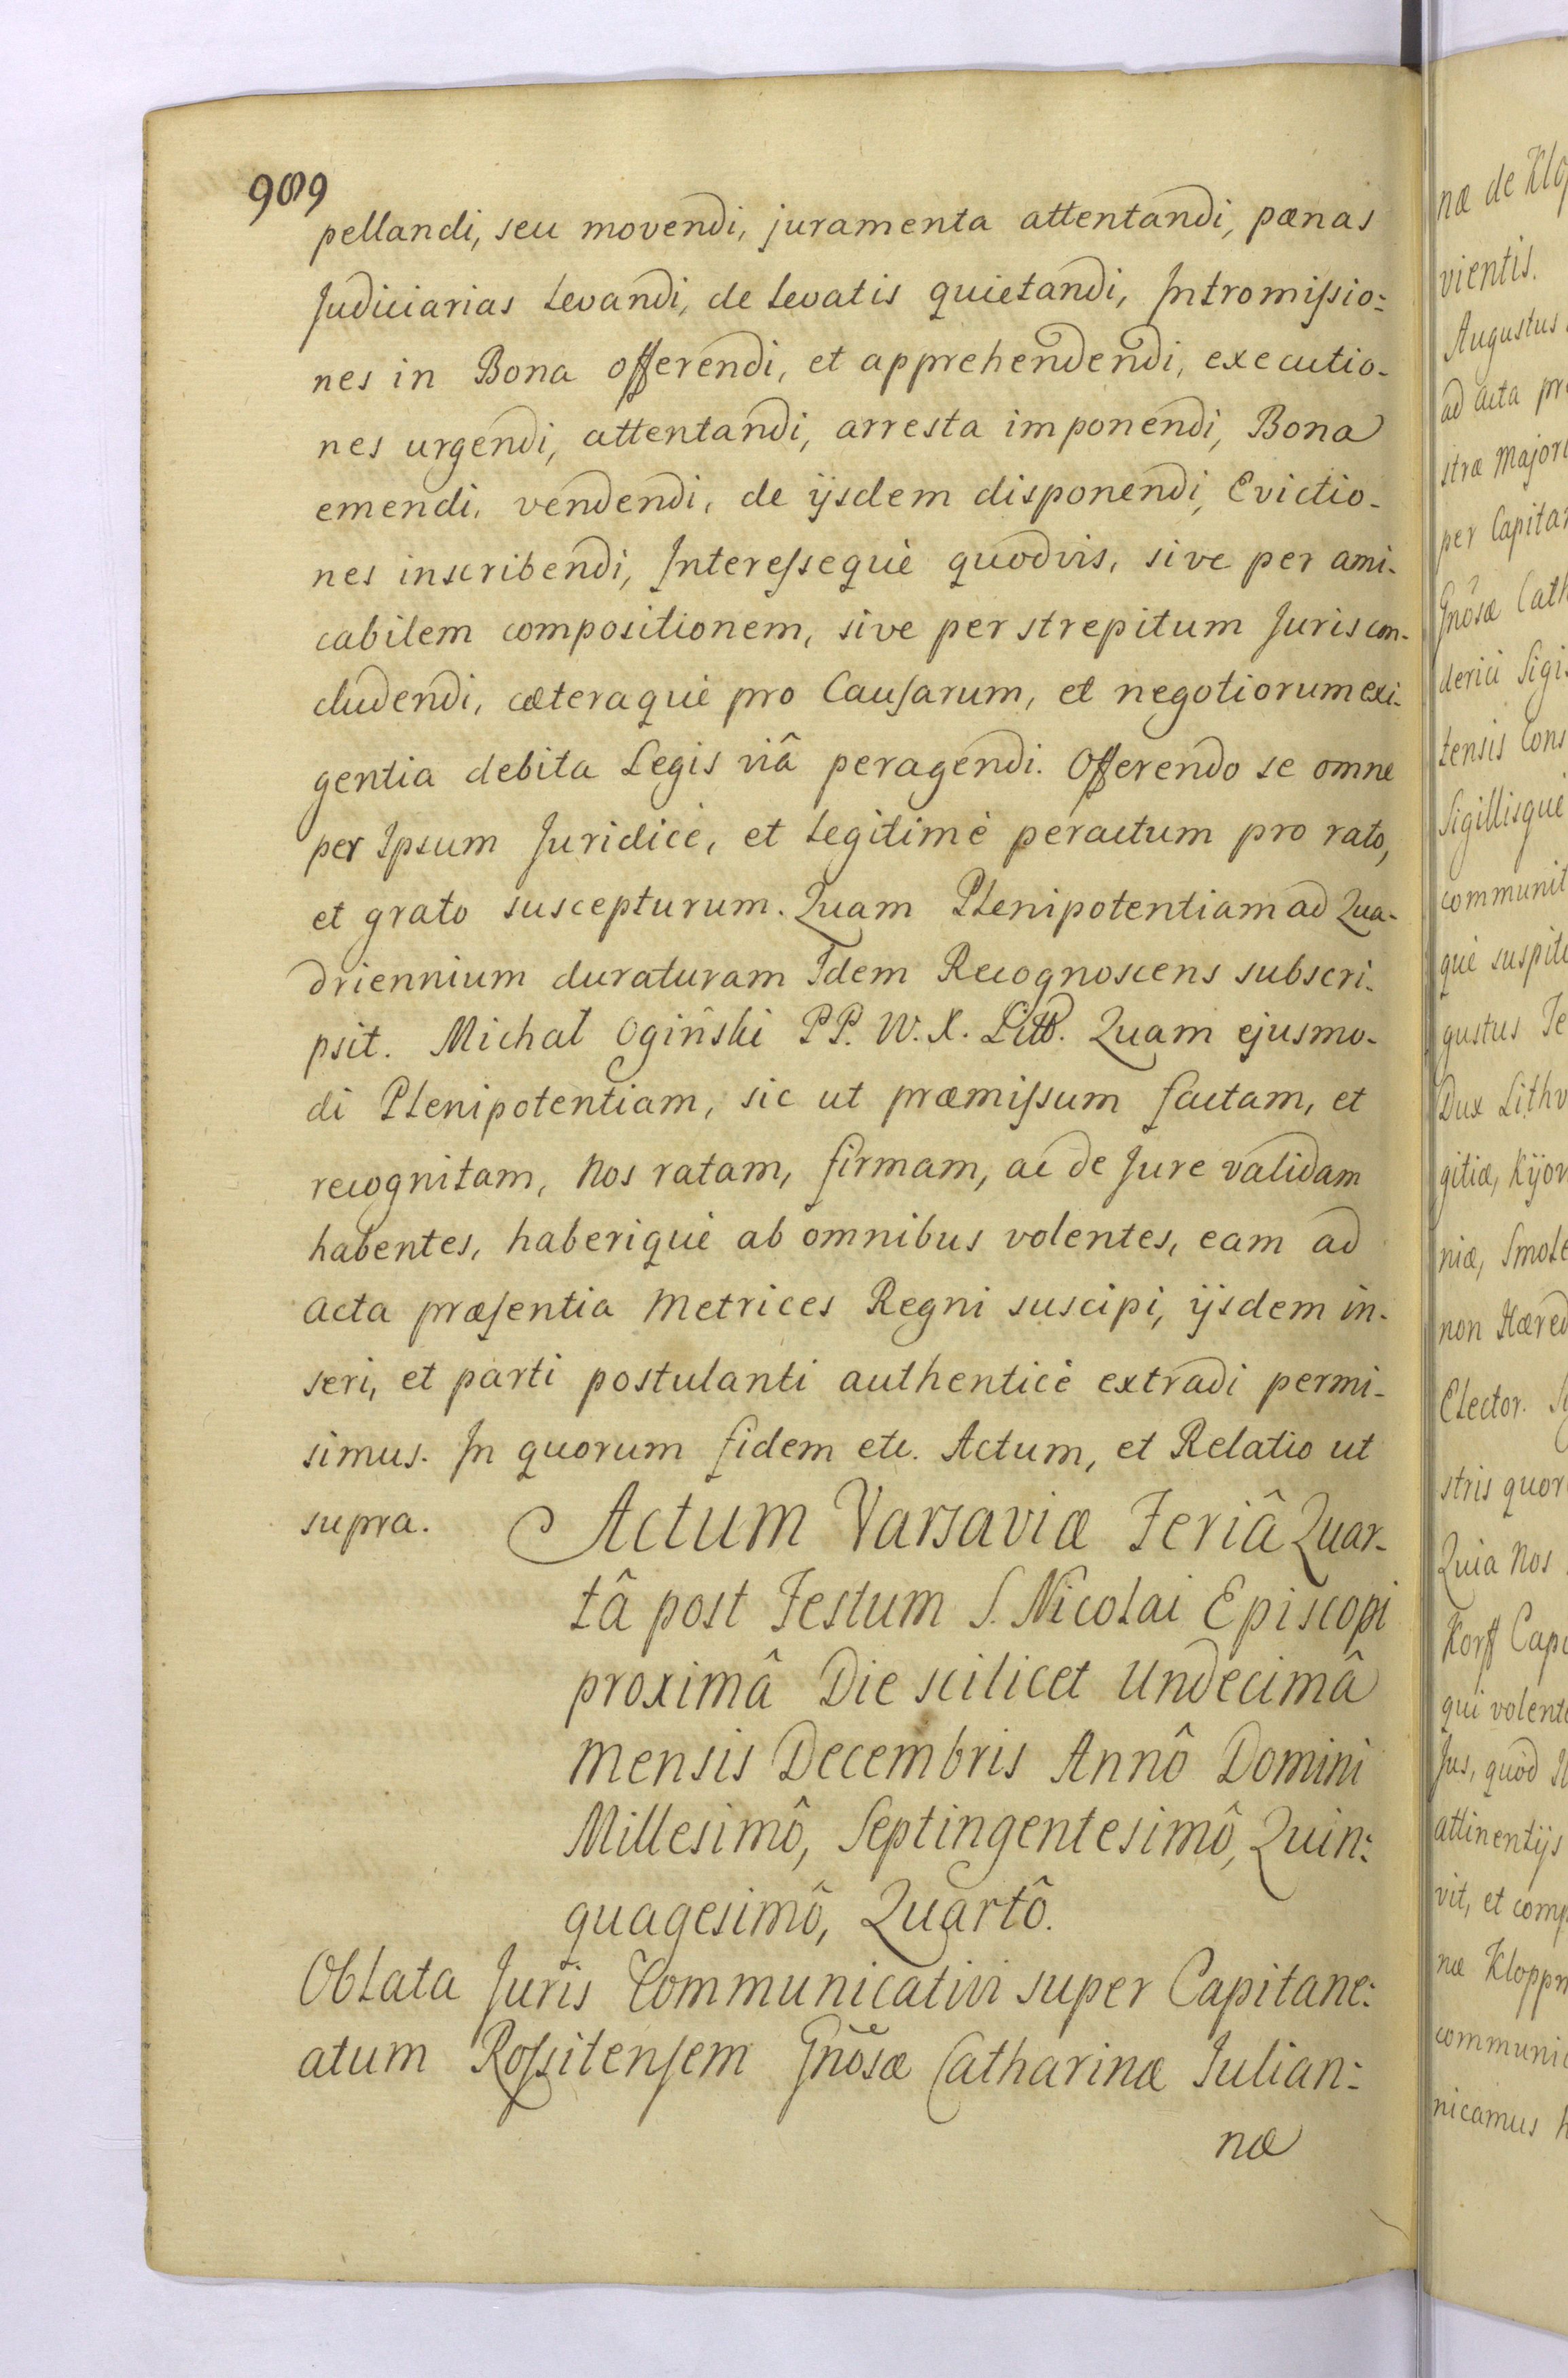 909
pellandi, seu movendi, juramenta attentandi, pœnas
Judiciarias levandi, de levatis quietandi, Intromiſsio:
nes in Bona offerendi, et apprehendendi, executio-
nes urgendi, attentandi, arresta imponendi, Bona
emendi, vendendi, de ijsdem disponendi, Evictio-
nes inscribendi, Intereſsequè quodvis, sive per ami-
cabilem compositionem, sive per strepitum Juris con-
cludendi, cæteraquè pro Cauſarum, et negotiorum exi-
gentia debita Legis viâ peragendi. Offerendo se omne
per Ipsum Juridicè, et legitimè peractum pro rato,
et grato suscepturum. Quam Plenipotentiam ad Qua-
driennium duraturam Idem Recognoscens subscri-
psit. Michał Ogiński PP. W. X. Litt. Quam ejusmo-
di Plenipotentiam, sic ut præmiſsum factam, et
recognitam, Nos ratam, firmam, ac de Jure validam
habentes, haberiquè ab omnibus volentes, eam ad
Acta præſentia Metrices Regni suscipi, ijsdem in-
seri, et parti postulanti authenticè extradi permi-
simus. In quorum fidem etc. Actum, et Relatio ut
supra.
Actum Varsaviæ Feriâ Quar-
tâ post Festum S. Nicolai Episcopi
proximâ Die scilicet Undecimâ
Mensis Decembris Annô Domini
Millesimô, Septingentesimô, Quin:
quagesimô, Quartô.
Oblata Juris Communicativi super Capitane:
atum Roſsitenſem Gnõsæ Catharinæ Julian:
næ
næ de Klop
vientis.
Augustus
ad acta pr
stræ Majori
per Capita
Gnõsæ Cath
derici Sigis
tensis Cons
Sigillisquè
communit
què suspit
gustus Te
Dux Lithv
gitiæ, Kijov
niæ, Smole
non Hæred
Elector. S
stris quor
Quia Nos
Korff Capi
qui volent
Jus, quod
attinentijs
vit, et comp
næ Kloppm
communi
nicamus